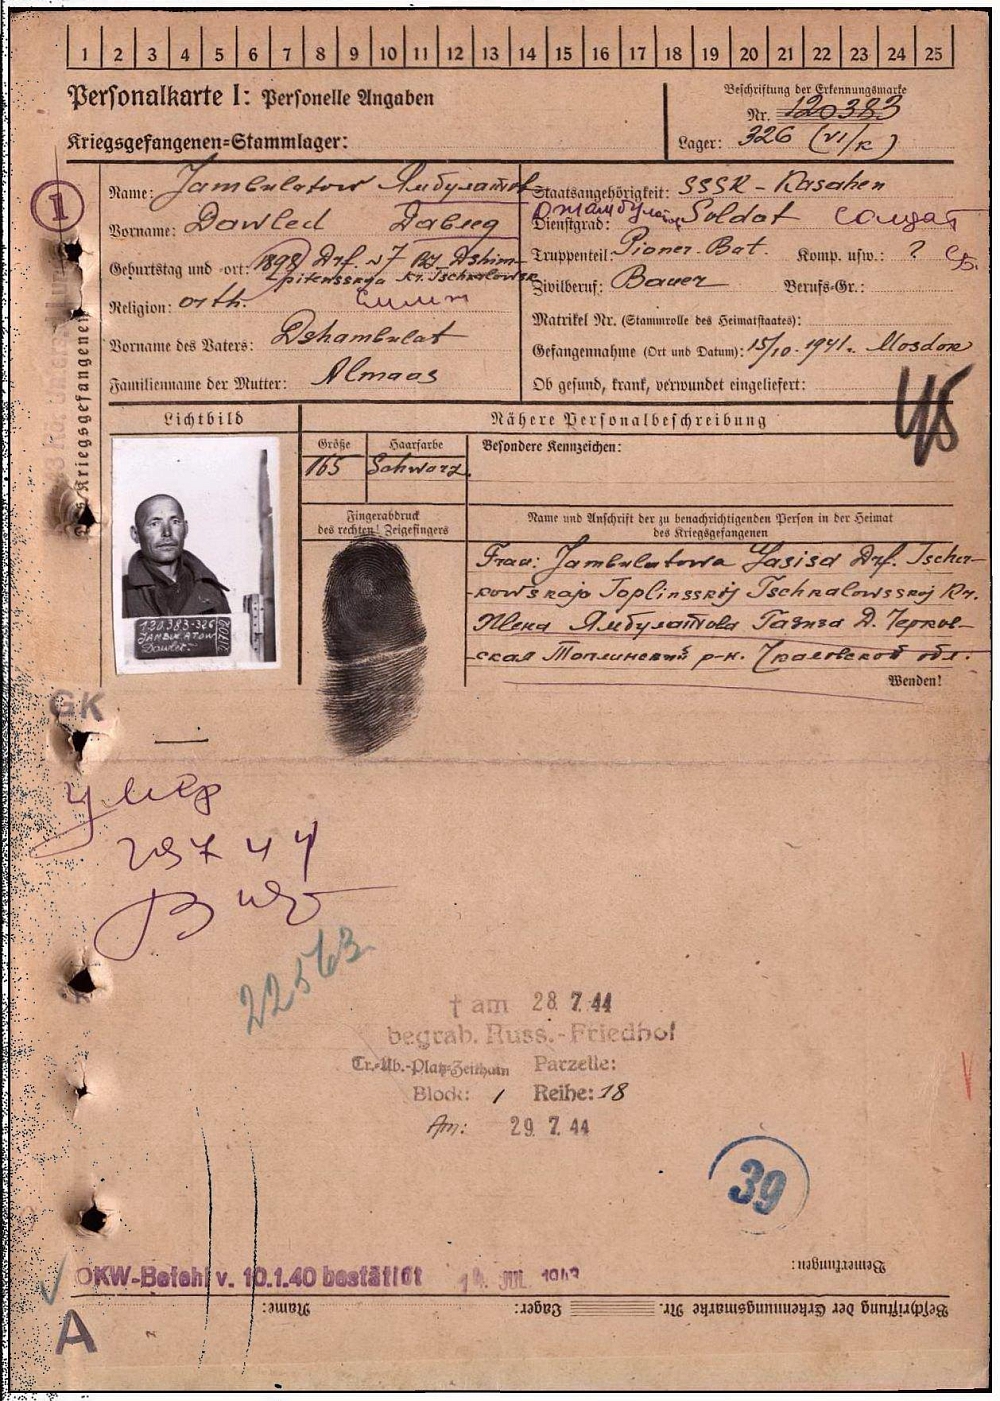 1 2 3 4 5 6 7 8 9 10 11 12 13 14 15 16 17 18 19 20 21 22 23 24 25
Personalkarte I: Personelle Angaben
Kriegsgefangenen=Stammlager:
Beschriftung der Erkennungsmarke
Nr. 120383
Lager: 326 (VI/K)
1
Name: Jambulatow Ямбулатов
Vorname: Dawled Давлед
Geburtstag und -ort: 1898 Drf. N7
Religion: orth.
Vorname des Vaters: Dshambulat
Familienname der Mutter: Almaas
Staatsangehörigkeit: SSSR - Kasahen
Dienstgrad: Soldat солдат
Truppenteil: Pioner. Bat. Komp. usw.: ?
Zivilberuf: Bauer Berufs-Gr.:
Matrikel Nr. (Stammrolle des Heimatstaates):
Gefangennahme (Ort und Datum): 15/10. 1941. Mosdok
Ob gesund, krank, verwundet eingeliefert:
Lichtbild
Nähere Personalbeschreibung
Größe Haarfarbe Besondere Kennzeichen:
165 Schwarz.
Fingerabdruck
des rechten! Zeigefingers
Name und Anschrift der zu benachrichtigenden Person in der Heimat
des Kriegsgefangenen
Frau: Jambulatowa Gasisa Drf. Tscher-
kowskaja Toplinsskij Tschkalowsskoj Kr.
Жена Ямбулатова Газиза Д. Черков-
ская Топлинский р-н. Чкаловской обл.
Wenden!
120.383-326
JAMBULATOW
Dawled
GK
умер
29 7 44
22563
† am 28. 7. 44
begrab. Russ.-Friedhof
Tr.-Üb.-Platz Zeithain Parzelle:
Block: 1 Reihe: 18
Am: 29. 7. 44
39
OKW-Befehl v. 10.1.40 bestätigt JUL. 1943
Bemerkungen:
Beschriftung der Erkennungsmarke Nr. Lager: Name:
A